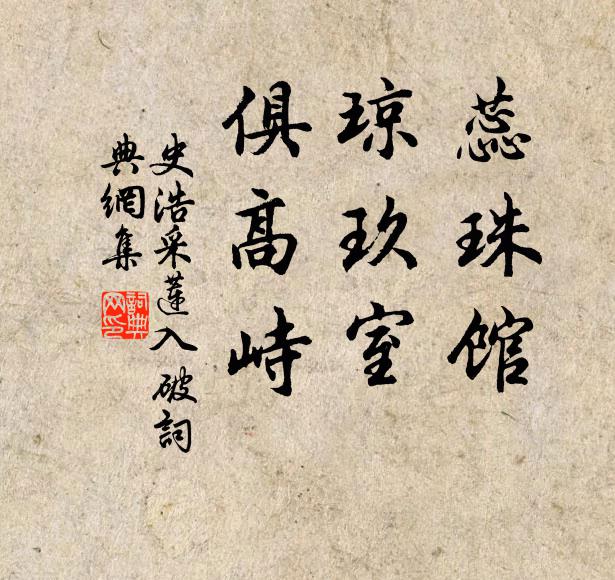 蕊珠館
琼玖室
俱高峙
史浩采蓮入破詞
典網集
詞典网印